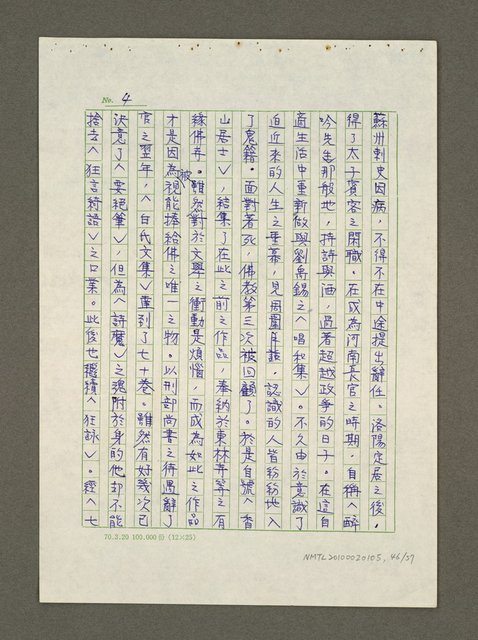 No. 4
蘇州刺史因病，不得不在中途提出辭任。洛陽定居之後，
得了太子賓客之閑職。在成為河南長官之時期，自稱〈醉
吟先生那般地，持詩與酒，過著超越政爭的日子。在這自
適生活中重新做與劉禹錫之〈唱和集〉。不久由於意識了
迫近來的人生之垂暮，見周圍 認識的人皆紛紛地入
了鬼籍。面對著死，佛教第三次被回顧了。於是自號〈香
山居士〉，結集了在此之前之作品，奉納於東林寺等之有
緣佛寺。雖然對於文學之衝動是煩惱，而成為如此之作品
才是因為被視能捧給佛之唯一之物。以刑部尚書之待遇辭了
官之翌年，〈白氏文集〉達到了七十卷。雖然有好幾次已
決意了〈要絕筆〉，但為〈詩魔〉之魂附於身的他却不能
捨去〈狂言綺語〉之口業。此後也繼續〈狂詠〉。經〈七
70.3.20 100.000份 (12×25)
NMTL20100020105, 46/57